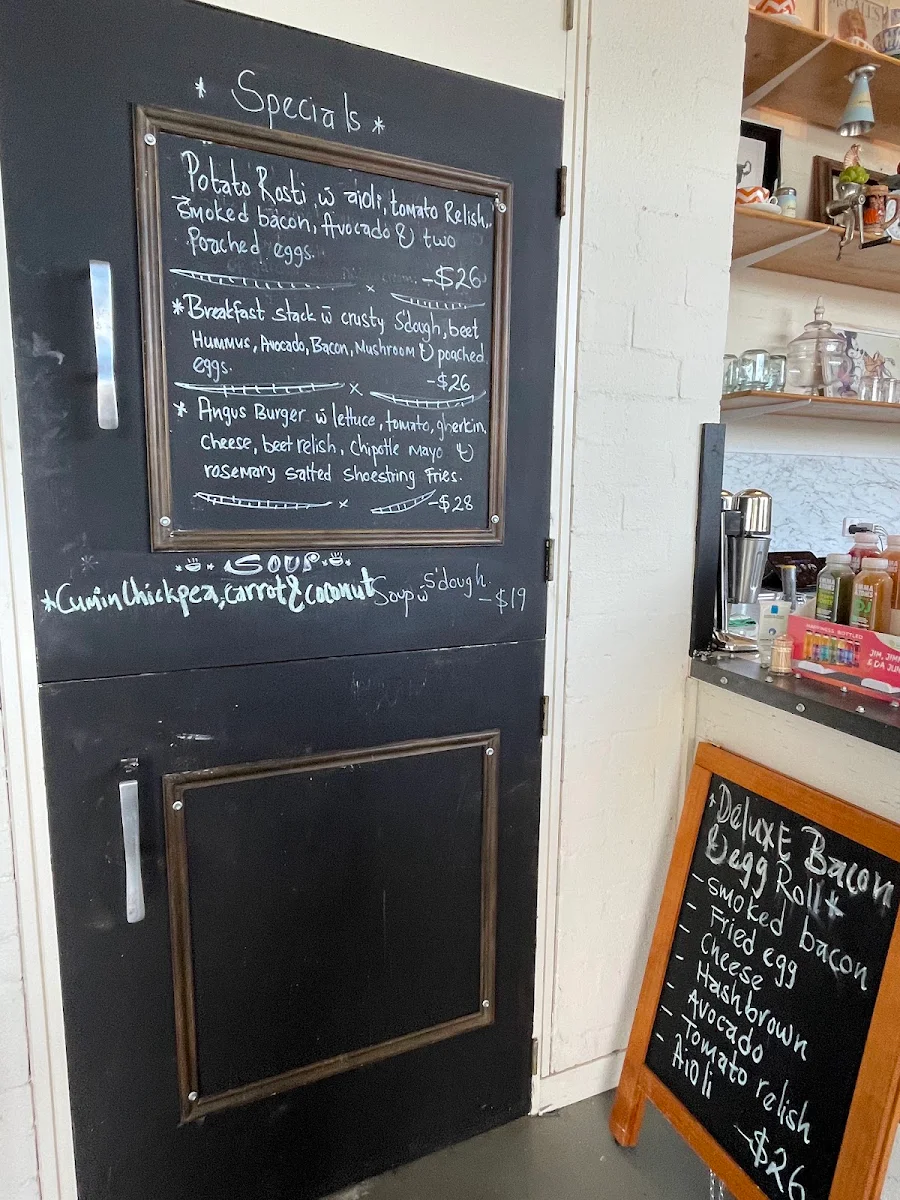 * Specials *
Potato Rosti w̄ aioli, tomato Relish,
Smoked bacon, Avocado & two
Poached eggs.
-$26
x
*Breakfast stack w̄ crusty S'dough, beet
Hummus, Avocado, Bacon, Mushroom & poached
eggs.
-$26
x
* Angus Burger w̄ lettuce, tomato, gherkin,
Cheese, beet relish, Chipotle Mayo &
rosemary salted shoestring fries.
x -$28
SOUP
*Cumin Chickpea, carrot & coconut Soup w̄ S'dough. -$19
HAPPINESS BOTTLED
*Deluxe Bacon
& egg Roll*
- smoked bacon
- Fried egg
- Cheese
- Hashbrown
- Avocado
- Tomato relish
- Aioli
-$26